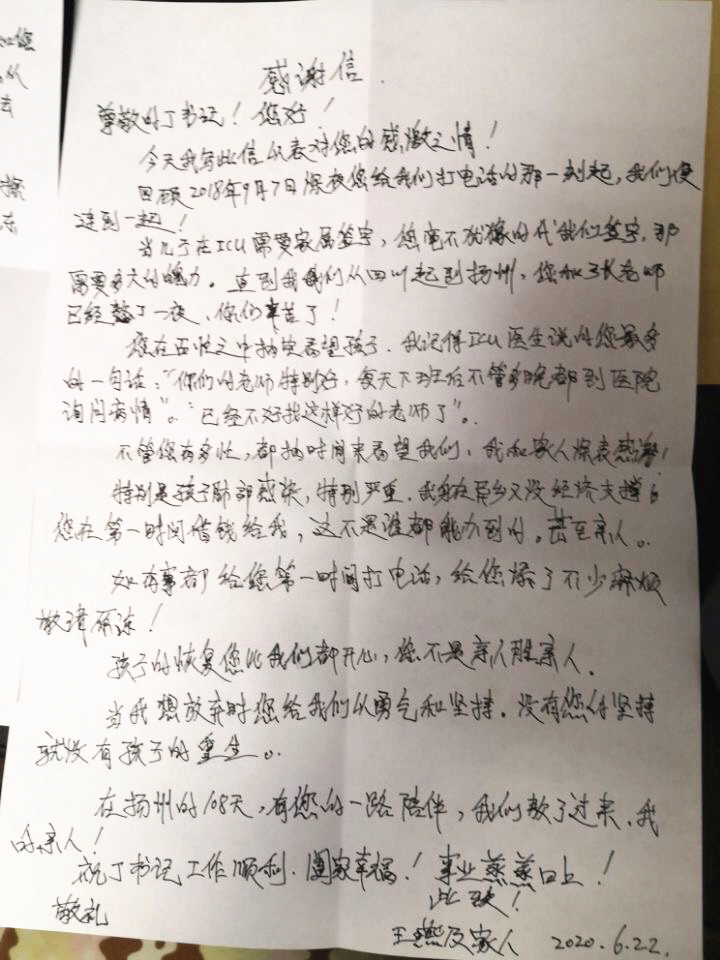 感谢信.
尊敬的丁书记！您好！
今天我写此信以表对您的感激之情！
回顾2018年9月7日深夜您给我们打电话的那一刻起，我们便
连到一起！
当儿子在ICU需要家属签字，您毫不犹豫的代我们签字.那
需要多大的魄力。直到我们从四川赶到扬州，您和张老师
已经熬了一夜、你们辛苦了！
您在百忙之中抽空看望孩子.我记得ICU医生说的您最多
的一句话："你们的老师特别好，每天下班后不管多晚都到医院
询问病情"。"已经不好找这样好的老师了"。
不管您有多忙，都抽时间来看望我们，我和家人深表感谢！
特别是孩子肺部感染，特别严重.我身在异乡又没经济支撑
您在第一时间借钱给我，这不是谁都能办到的。甚至亲人。
如有事都给您第一时间打电话，给您添了不少麻烦
敬请原谅！
孩子的恢复您比我们都开心，您不是亲人胜亲人.
当我想放弃时您给我们以勇气和坚持.没有您的坚持
就没有孩子的重生。
在扬州的108天，有您的一路陪伴，我们熬了过来.我
的亲人！
祝丁书记工作顺利.阖家幸福！事业蒸蒸日上！
此致！
敬礼
王燕及家人 2020.6.22.
您
从
去